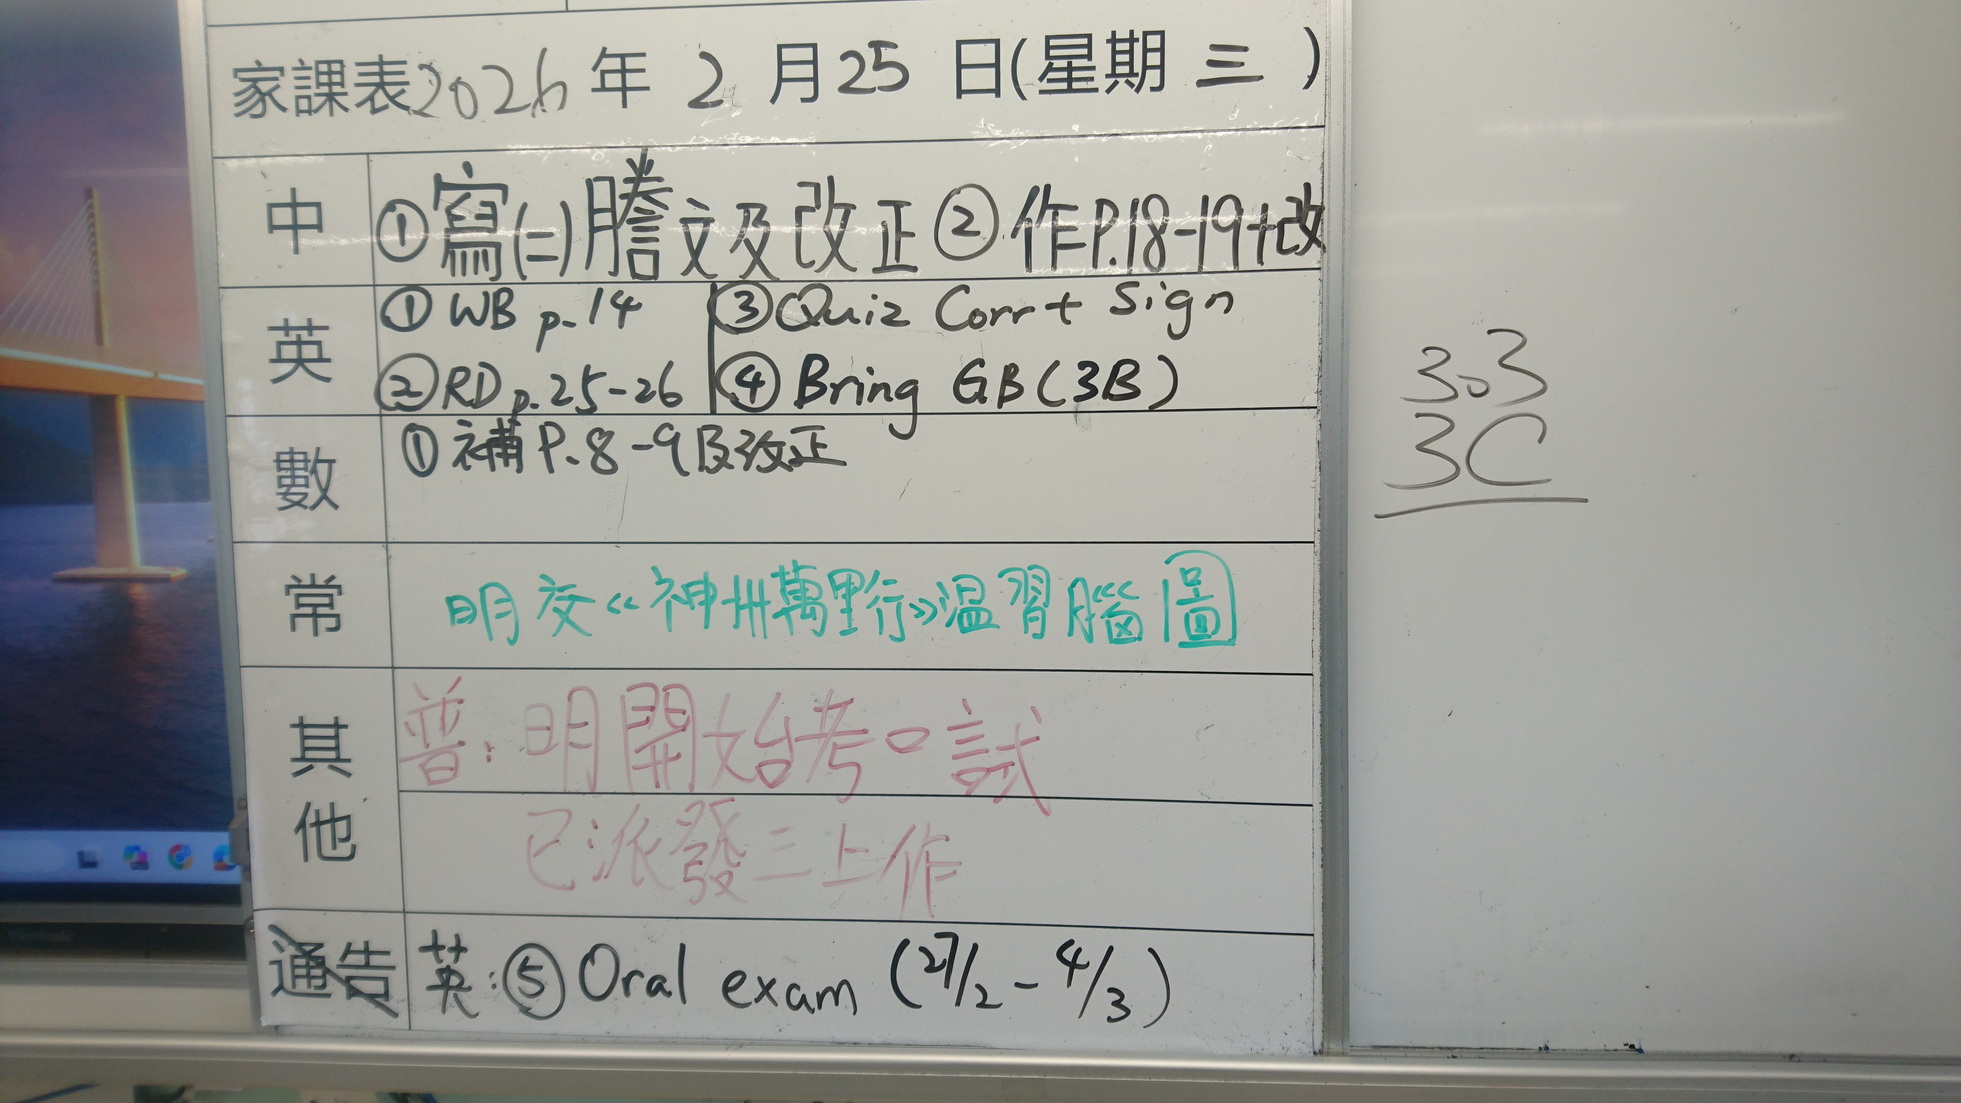 家課表2026年 2 月25 日(星期 三 )
中 ①寫(二)謄文及改正②作P.18-19+改
英 ① WB p.14 ③Quiz Corr + Sign
②RD p.25-26 ④ Bring GB(3B)
數 ① 補P.8-9及改正
常 明交《神州萬里行》溫習腦圖
其他 普:明開始考口試
已派發三上作
通告 英:⑤ Oral exam (27/2-4/3)
303
3C